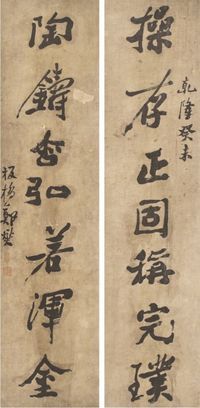 操存正固稱完璞
乾隆癸未
陶鑄含弘若渾金
板橋鄭燮